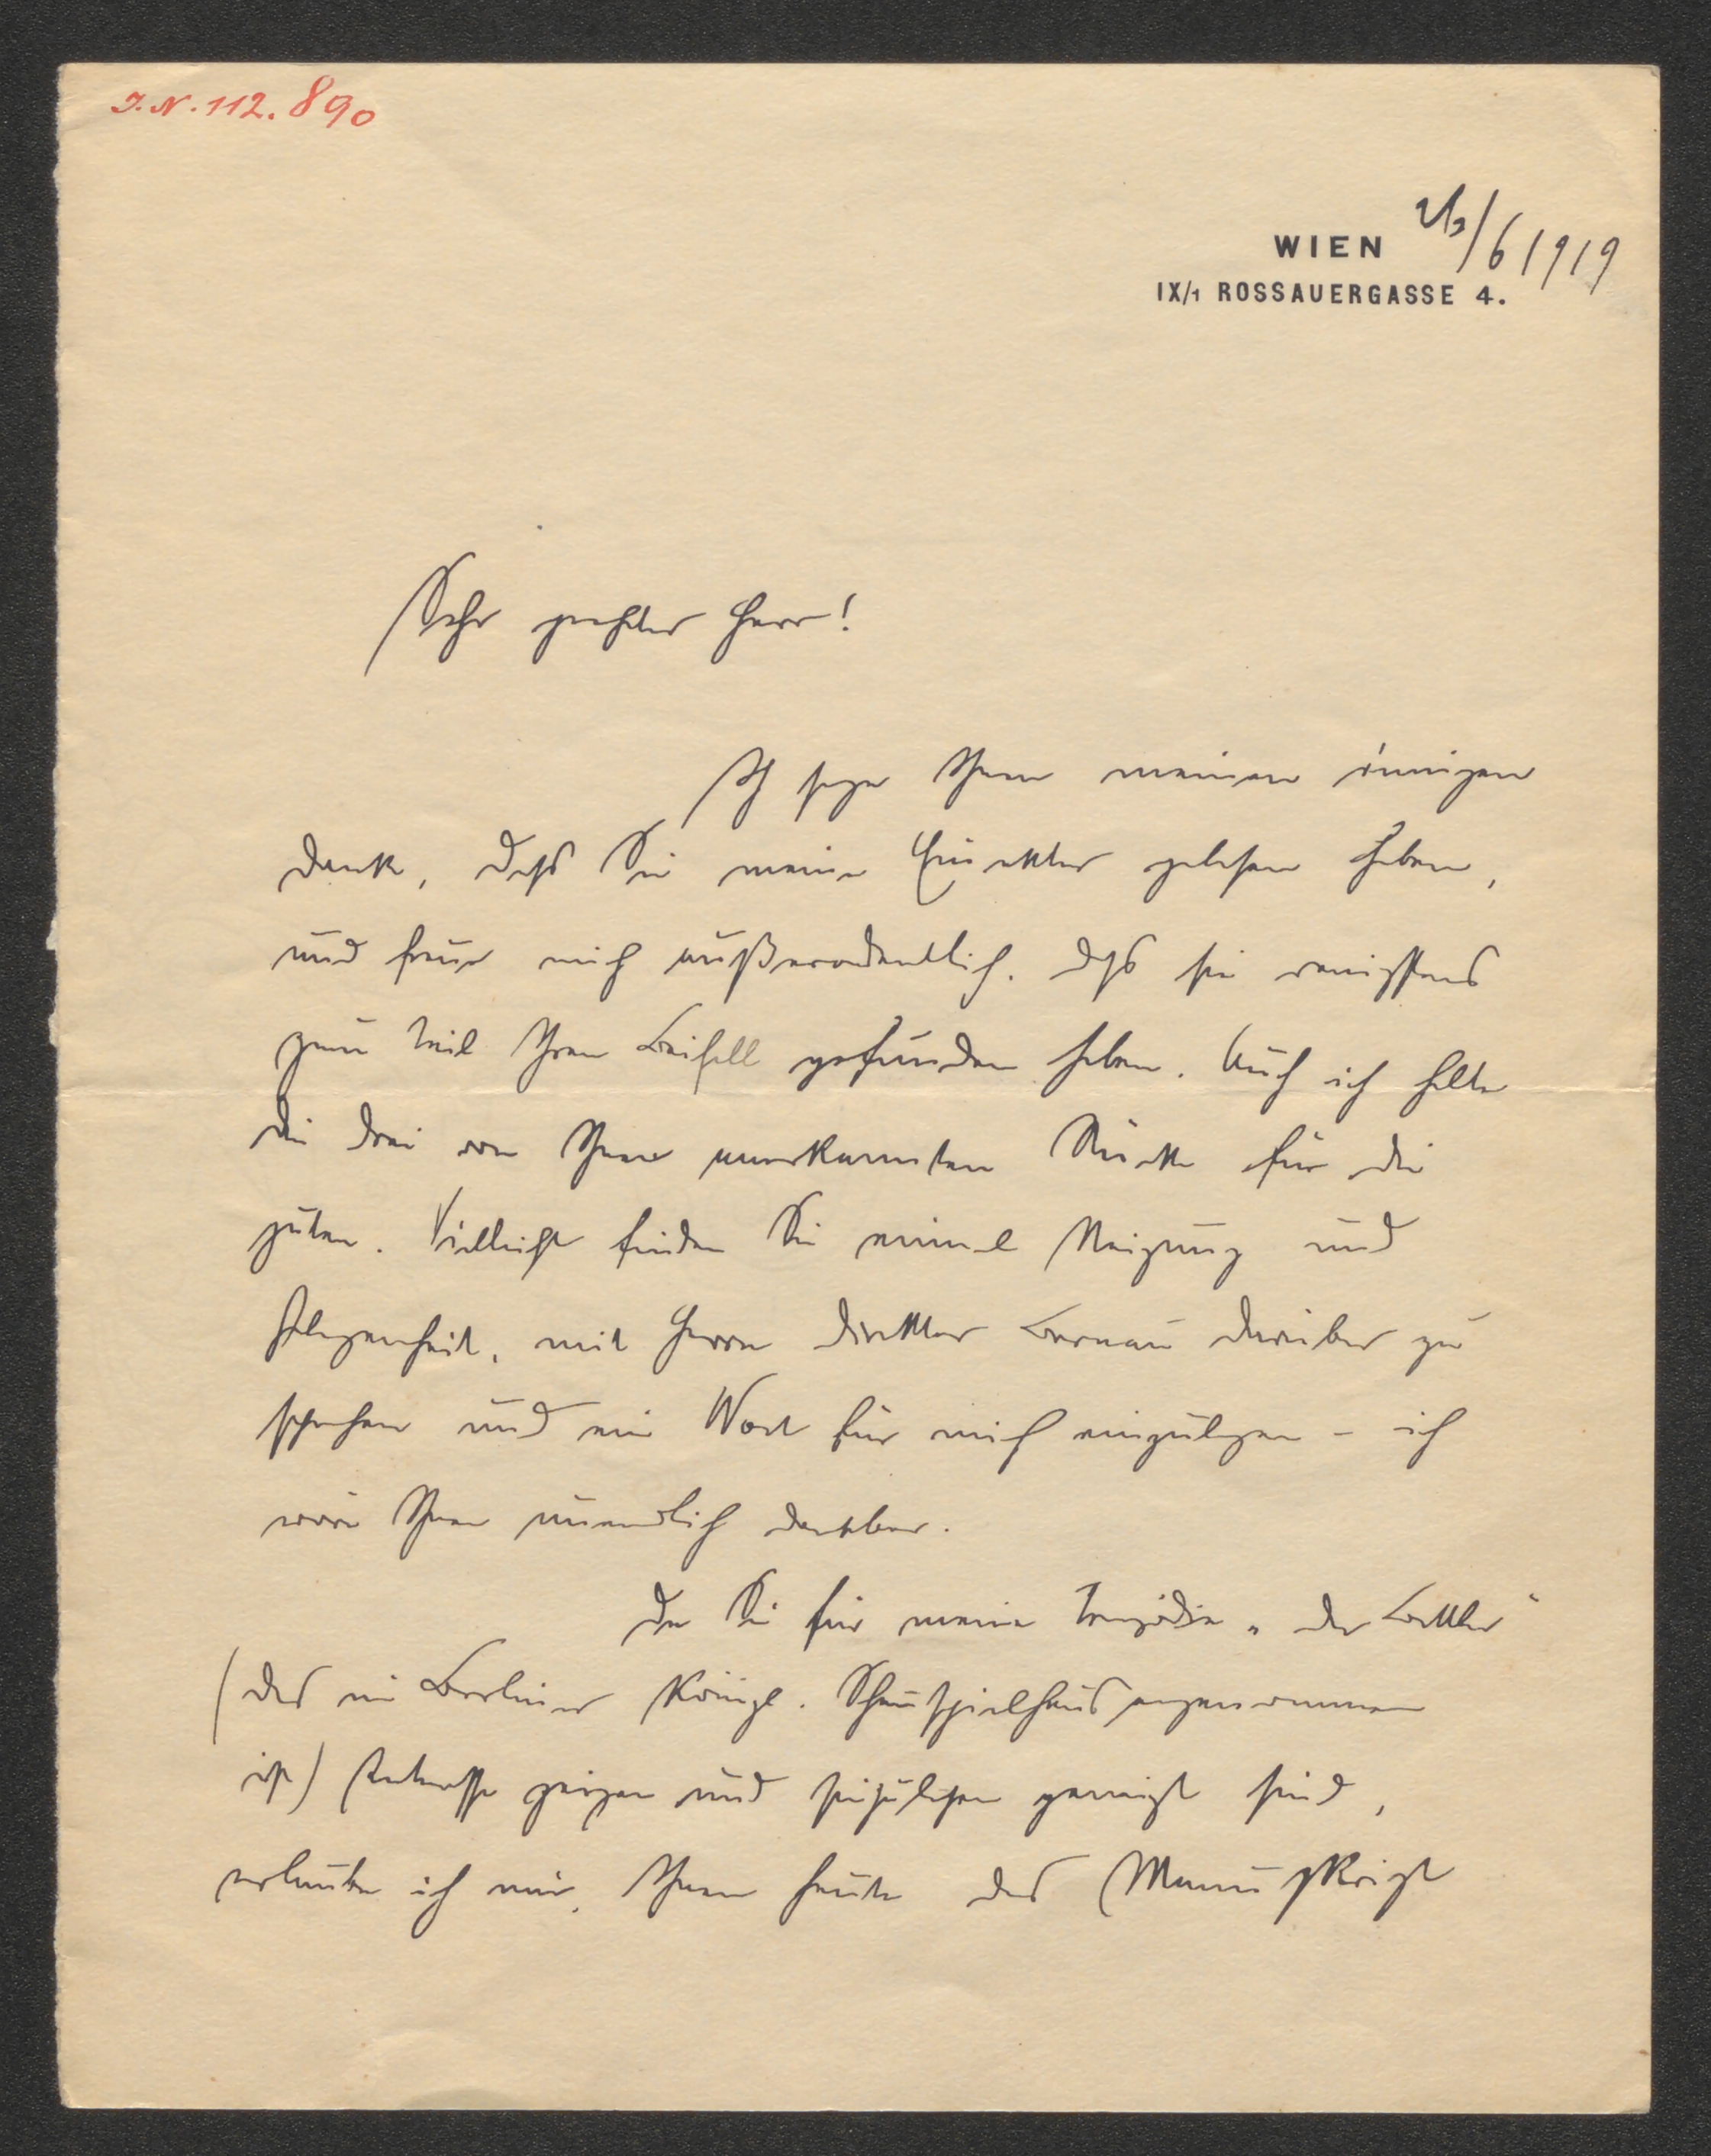 I.N. 112.890
WIEN /6 1919
IX/1 ROSSAUERGASSE 4.
Sehr geehrter Herr!
Ich sage Ihnen meinen innigen
Dank, dass Sie meine Einakter gelesen haben,
und freue mich außerordentlich, dass sie wenigstens
zum Teil Ihren Beifall gefunden haben. Auch ich halte
die drei von Ihnen anerkannten Stücke für die
guten. Vielleicht finden Sie einmal Neigung und
Gelegenheit, mit Herrn Direktor Bernau darüber zu
sprechen und ein Wort für mich einzulegen – ich
wäre Ihnen unendlich dankbar.
Da Sie für meine Tragödie „Der Bettler“
(das im Berliner Königl. Schauspielhaus angenommen
ist) Interesse zeigen und sie zu lesen geneigt sind,
erlaube ich mir, Ihnen heute das Manuskript